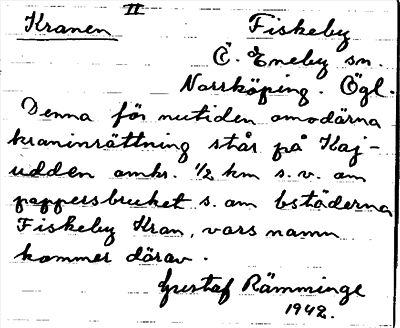 II
Kranen Fiskeby
Ö. Eneby sn.
Norrköping. Ögl.
Denna för nutiden omodärna
kraninrättning står på Kaj-
udden omkr. 1/2 km s.v. om
pappersbruket s. om bstäderna
Fiskeby Kran, vars namn
kommer därav.
Gustaf Rämminge
1942.